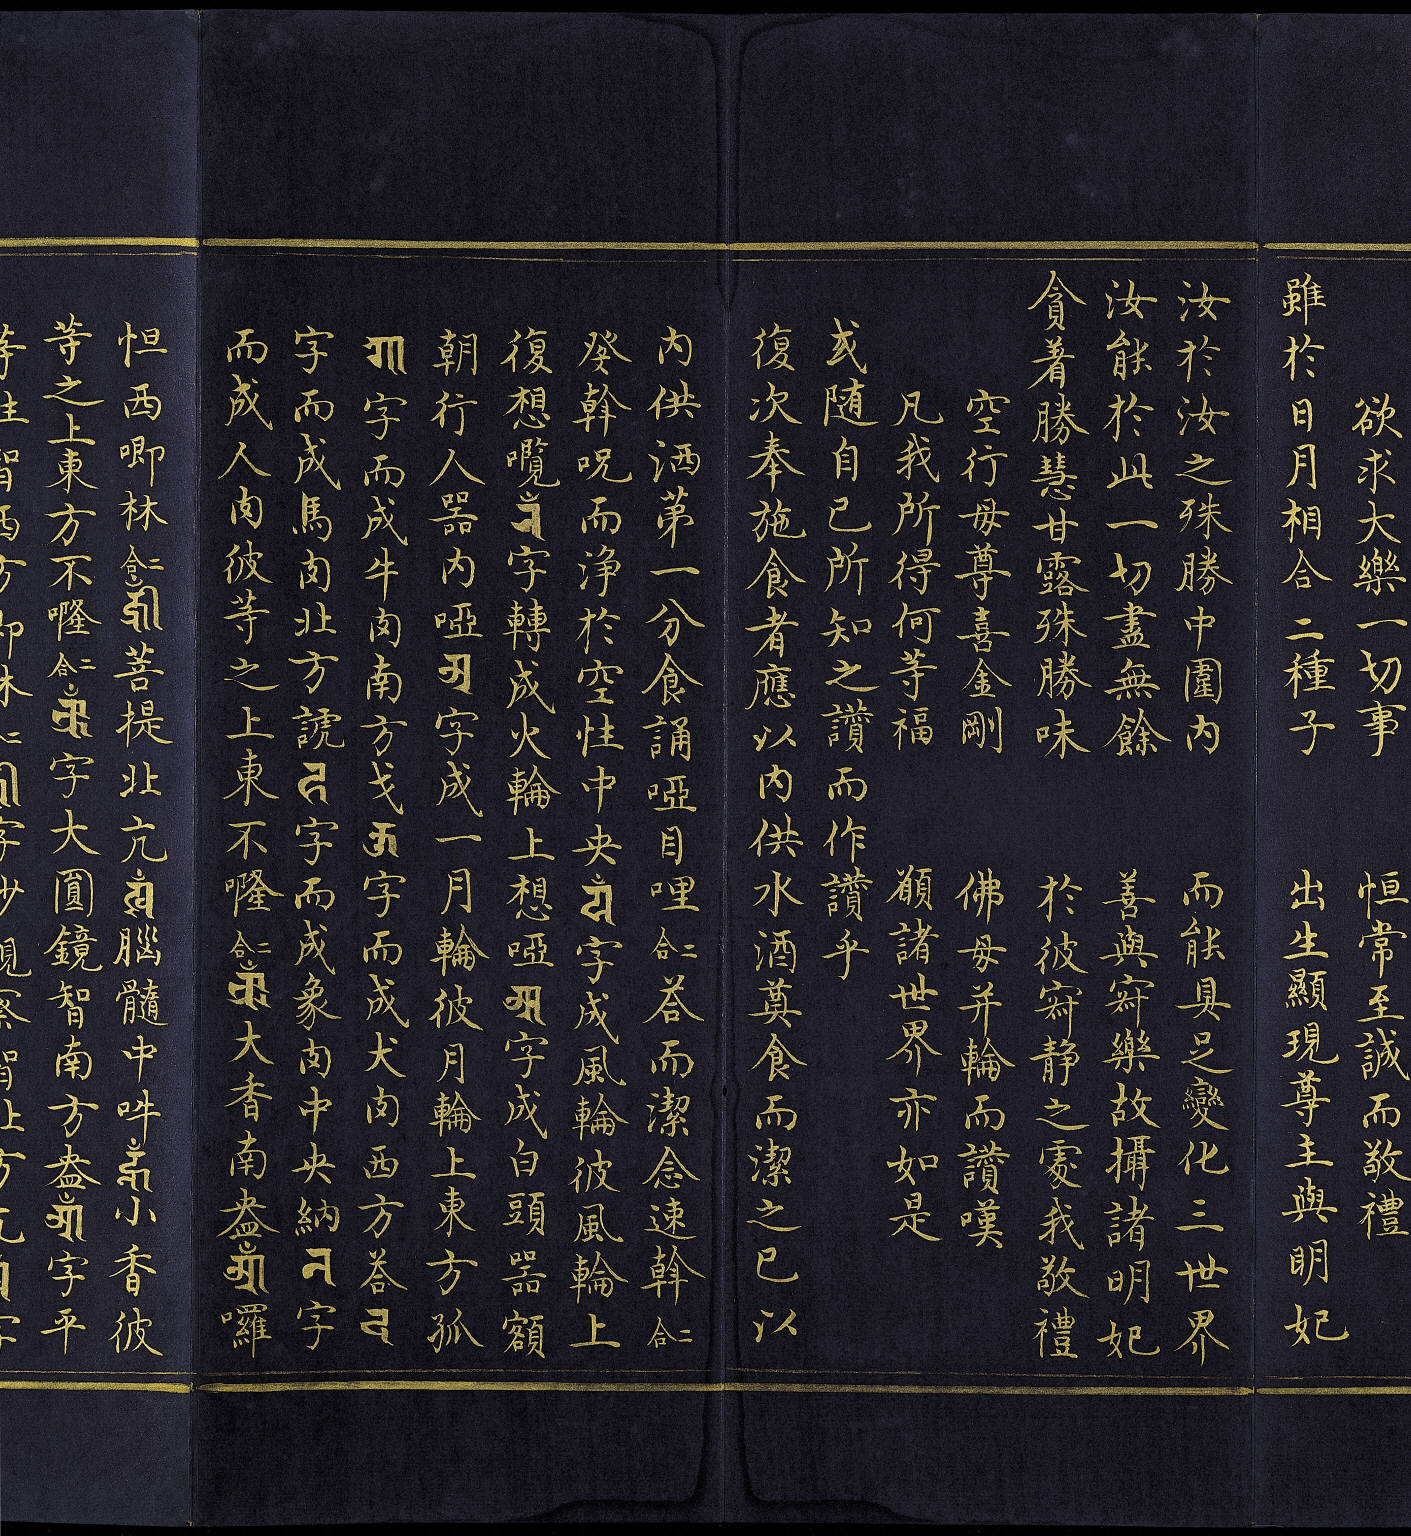 欲求大樂一切事　恒常至誠而敬禮
雖於日月相合二種子　出生顯現尊主與明妃
汝於汝之殊勝中圍內　而能具足變化三世界
汝能於此一切盡無餘　善與寂樂故攝諸明妃
貪著勝慧甘露殊勝味　於彼寂静之處我敬禮
空行母尊喜金剛　佛母并輪而讚嘆
凡我所得何等福　願諸世界亦如是
或随自已所知之讚而作讚乎
復次奉施食者應以內供水酒奠食而潔之已以
內供洒苐一分食誦啞目哩二合荅而潔念速斡二合
癹斡呪而淨於空性中央字成風輪彼風輪上
復想囕字轉成火輪上想啞字成白頭器額
朝行人器內啞字成一月輪彼月輪上東方孤
字而成牛肉南方戈字而成犬肉西方荅
字而成馬肉北方謊字而成象肉中央納字
而成人肉彼等之上東不㘕二合大香南盎囉
怛西唧林二合菩提北亢腦髓中吽小香彼
等之上東方不㘕二合字大圓鏡智南方盎字平